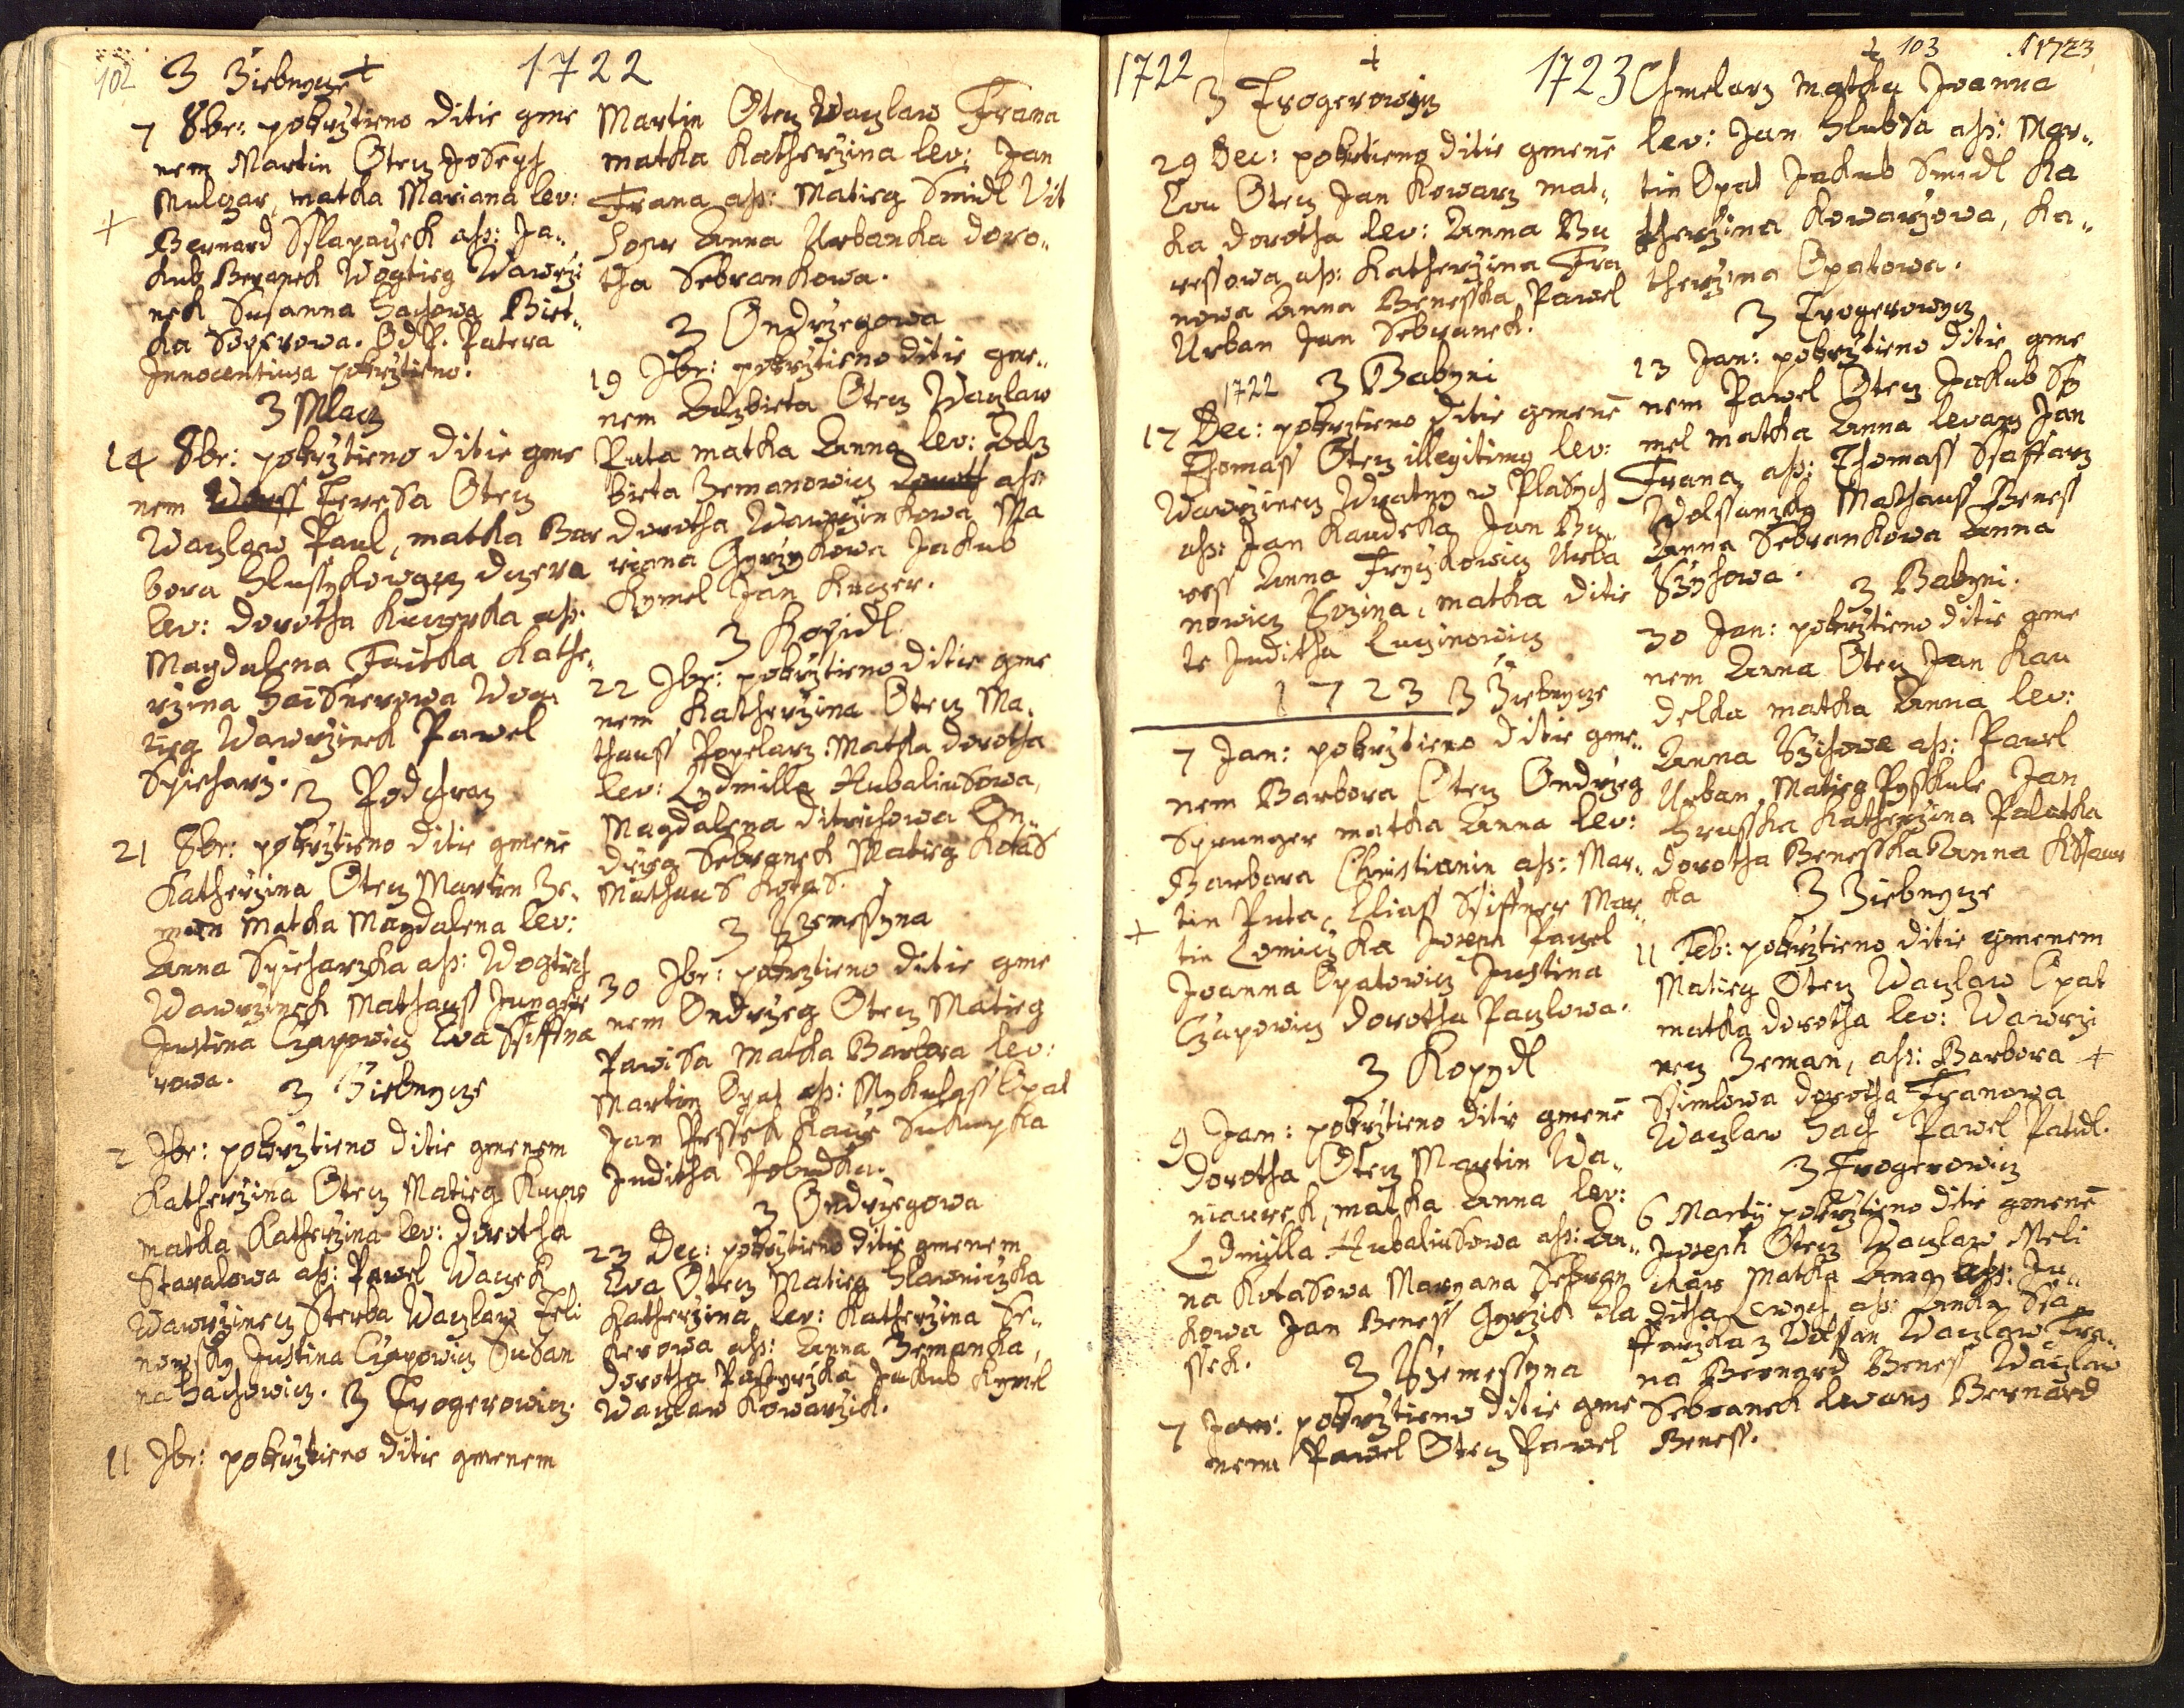 102 Z Ziebnycze + 1722
7 8br: pokrztieno ditie gme
nem Martin Otecz Joseph
Mulczar, matka Mariana lev:
+ Bernard Sslapayck ass: Ja„
kub Beranek Wogtieg Wawrzi
nek Susanna Hachowa Biet„
ka . Od P. Patera
Innocentiusa pokrztieno.
Z Mlacz
14 8br: pokrztieno ditie gme
nem Teresa Otecz
Waczlaw Paul, matka Bar
bora dczera
lev: Dorotha Kuczerka ass:
Magdalena Faitka Kathe„
rzina Haisnerowa Wog„
tieg Wawrzinek Pawel
Spicharz. Z Podchraz
21 8br: pokrztieno ditie gmenē
Katherzina Otecz Martin Ze„
man Matka Magdalena lev:
Anna Spicharzka ass: Wogtiech
Wawrzinek Mathauss
Justina Czapowicz Eva Ssiffna
rowa. Z Ziebnycze
2 9br: pokrztieno ditie gmenem
Katherzina Otecz Matieg
matka Katherzina lev: Dorotha
Staralowa ass: Pawel Waczek
Wawrzinecz Sterba Waczlaw Zeli
nowsky Justina Czapowicz Susan
na Hachowicz. Z Trogerowicz
11 9br: pokrztieno ditie gmenem
Martin Otecz Waczlaw Frana
matka Katherzina lev: Jan
Frana ass: Matieg Smidl Vit
Anna Urbanka Doro„
tha Sebrankowa.
Z Ondrzegowa
19 9br: pokrztieno ditie gme„
nem Alzbieta Otecz Waczlaw
Puta matka Anna lev: Alz
bieta Zemanowicz ass:
Dorotha Wawrzinkowa Ma
riana Gyrzykowa Jakub
Kymel Jan Kuczer.
Z Kopidl
22 9br: pokrztieno ditie gme
nem Katherzina Otecz Ma„
thauss Popelarz Matka Dorotha
lev: Lydmilla Hubaliusowa,
Magdalena Ditrichowa On„
drzeg Sebranek Matieg Kotas
Mathaus Kotas.
Z Wzemessyna
30 9br: pokrztieno ditie gme
nem Ondrzeg Otecz Matieg
Pawisa Matka Barbora lev:
Martin Opat ass: Mykulass Opat
Jan Pessek
Juditha Pobudka.
Z Ondrzegowa
23 Dec: pokrztieno ditie gmenem
Eva Otecz Matieg Hlawniczka
Katherzina lev: Katherzina Se„
kerowa ass: Anna Zemanka,
Dorotha Pastyrzka Jakub Kymel
Waczlaw Kowarzik.
1722 + 1723
Z Trogerowicz
29 Dec: pokrztieno ditie gmenē
Eva Otecz Jan Kowarz mat„
ka Dorotha lev: Anna Bu
ressowa ass: Katherzina Fra
nowa Anna Benesska Pawel
Urban Jan Sebranek.
1722 Z Babyni
17 Dec: pokrztieno ditie gmenē
Thomass Otecz illegitimy lev:
Wawrzinecz Wratny w Plasych
ass: Jan Kaudelka Jan Bu„
ress Anna Urba
nowicz Rozina, matka ditie
te Juditha Luczinowicz
1723 Z Ziebnycze
7 Jan: pokrztieno ditie gme„
nem Barbora Otecz Ondrzeg
Sprunger matka Anna lev:
Barbara Christianin ass: Mar„
+ tin Puta, Eliass Ssiffner Mar„
tin Lomiczka Joseph Paczel
Joanna Opatowicz Justina
Czapowicz Dorotha Paczlowa.
Z Kopydl
9 Jan: pokrztieno ditie gmenē
Dorotha Otecz Martin Wa„
niaurek, matka Anna lev:
Lydmilla Hubaliusowa ass: An„
na Kotasowa Maryana Sebran
kowa Jan Beness Gyrzik Hla
ssek.
Z Wzemessyna
7 Jan: pokrztieno ditie gme
nem Pawel Otecz Pawel
+ 103 1723
Chmelarz matka Joanna
lev: Jan Hlubsa ass: Mar„
tin Opat Jakub Smidl Ka
therzina Kowarzowa, Ka„
therzina Opatowa.
Z Trogerowicz
13 Jan: pokrztieno ditie gme
nem Pawel Otecz Jakub
mel matka Anna levans Jan
Frana, ass: Thomass Ssaffarz
Wolssansky Mathauss Beness
Anna Sebrankowa Anna
Rzihowa. Z Babyni.
30 Jan: pokrztieno ditie gme
nem Anna Otecz Jan Kau
delka matka Anna lev:
Anna Rzihowa ass: Pawel
Urban, Matieg Pysskule Jan
Hrusska Katherzina Palatka
Dorotha Benesska Anna
ka Z Ziebnycze
11 Feb: pokrztieno ditie gmenem
Matieg Otecz Waczlaw Opat
matka Dorotha lev: Wawrzi
necz Zeman, ass: Barbora +
Ssimlowa Dorotha Franowa
Waczlaw Hach Pawel Patidl.
Z Trogerowicz
6 Martij pokrztieno ditie gmenē
Joseph Otecz Waczlaw Meli
char Matka Anna ass: Ju„
ditha ass: Anka Ssa„
ffarzka z Wolssan Waczlaw Fra„
na Bernard Beness Waczlaw
Sebranek levans Bernard
Beness.